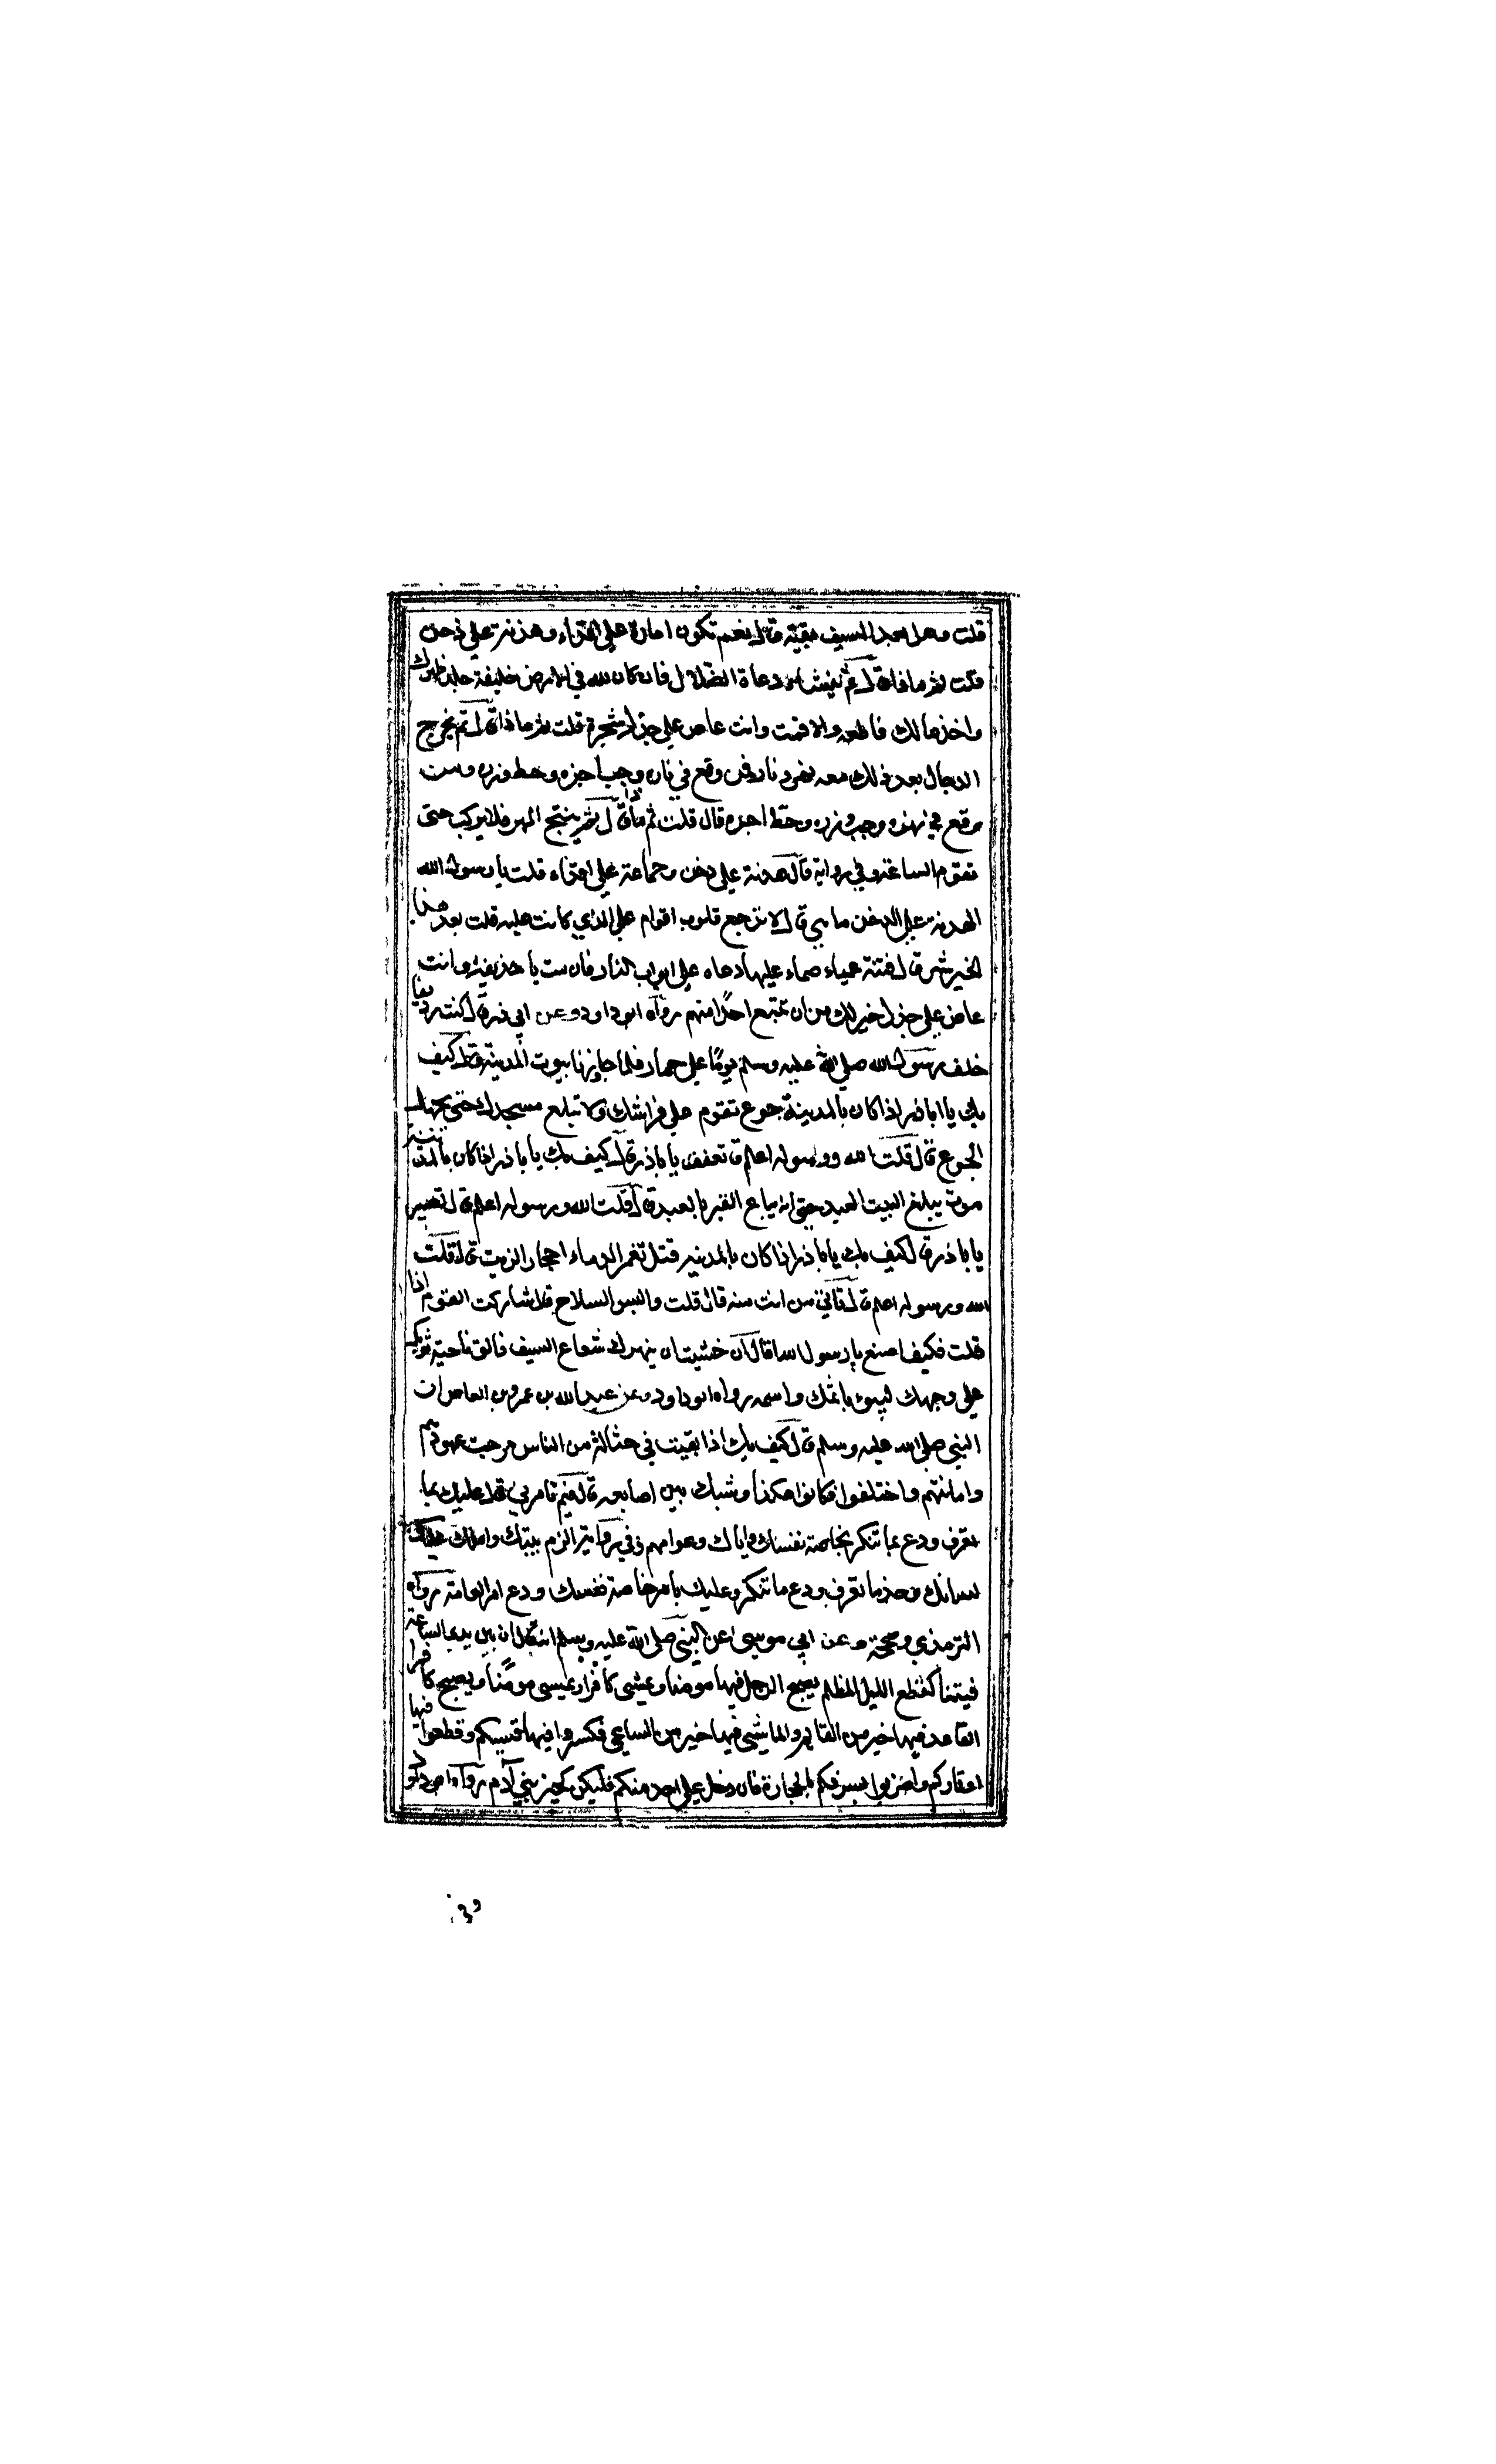 قلت وهل بعد السيف بقية قال نعم تكون امارة على اقذاء وهدنة على دخن
قلت ثم ماذا قال ثم ينشا دعاة الضلال فان كان لله في الارض خليفة جلد ظهرك
واخذ مالك فاطعه والا فمت وانت عاض على جذل شجرة قلت ثم ماذا قال ثم يخرج
الدجال بعد ذلك معه نهر ونار فمن وقع في ناره وجب اجره وحط وزره ومن
وقع في نهره وجب وزره وحط اجره قال قلت ثم ماذا قال ثم ينتج المهر فلا يركب حتى
تقوم الساعة وفي رواية قال هدنة على دخن وجماعة على اقذاء قلت يا رسول الله
الهدنة على الدخن ما هي قال لا ترجع قلوب اقوام على الذي كانت عليه قلت بعد هذا
الخير شر قال فتنة عمياء صماء عليها دعاة على ابواب النار فان مت يا حذيفة وانت
عاض على جذل خير لك من ان تتبع احدا منهم رواه ابو داود وعن ابي ذر قال كنت رديفا
خلف رسول الله صلى الله عليه وسلم يوما على حمار فلما جاوزنا بيوت المدينة قال كيف
بك يا ابا ذر اذا كان بالمدينة جوع تقوم على فراشك ولا تبلغ مسجدك حتى يجهدك
الجوع قال قلت الله ورسوله اعلم قال تعفف يا با ذر قال كيف بك يا با ذر اذا كان بالمدينة
موت يبلغ البيت العبد حتى انه يباع القبر بالعبد قال قلت الله ورسوله اعلم قال تصبر
يا با ذر قال كيف بك يا با ذر اذا كان بالمدينه قتل تغمر الدماء احجار الزيت قال قلت
الله ورسوله اعلم قال تاتي من انت منه قال قلت والبس السلاح قال شاركت القوم اذا
قلت فكيف اصنع يا رسول الله قال ان خشيت ان يبهرك شعاع السيف فالق ناحية ثوبك
على وجهك ليبوء باثمك واسمه رواه ابو داود وعن عبد الله بن عمرو بن العاص ان
النبي صلى الله عليه وسلم قال كيف بك اذا بقيت في حثالة من الناس مرجت عهودهم
واماناتهم واختلفوا فكانوا هكذا وشبك بين اصابعه قال فبم تامرني قال عليك بما
تعرف ودع ما تنكر بخاصة نفسك واياك وعوامهم وفي رواية الزم بيتك واملك عليك
لسانك وخذ ما تعرف ودع ما تنكر وعليك بامر خاصة نفسك ودع امر العامة رواه
الترمذي وصححه وعن ابي موسى عن النبي صلى الله عليه وسلم انه قال ان بين يدي الساعة
فيتنا كقطع الليل المظلم يصبح الرجل فيها مومنا ويمسي كافرا ويمسي مومنا ويصبح كافرا
القاعد فيها خير من القايم والماشي فيها خير من الساعي فكسروا فيها قسيكم وقطعوا فيها
اوتاركم واضربوا سيوفكم بالحجارة فان دخل على احد منكم فليكن كخير بني آدم رواه